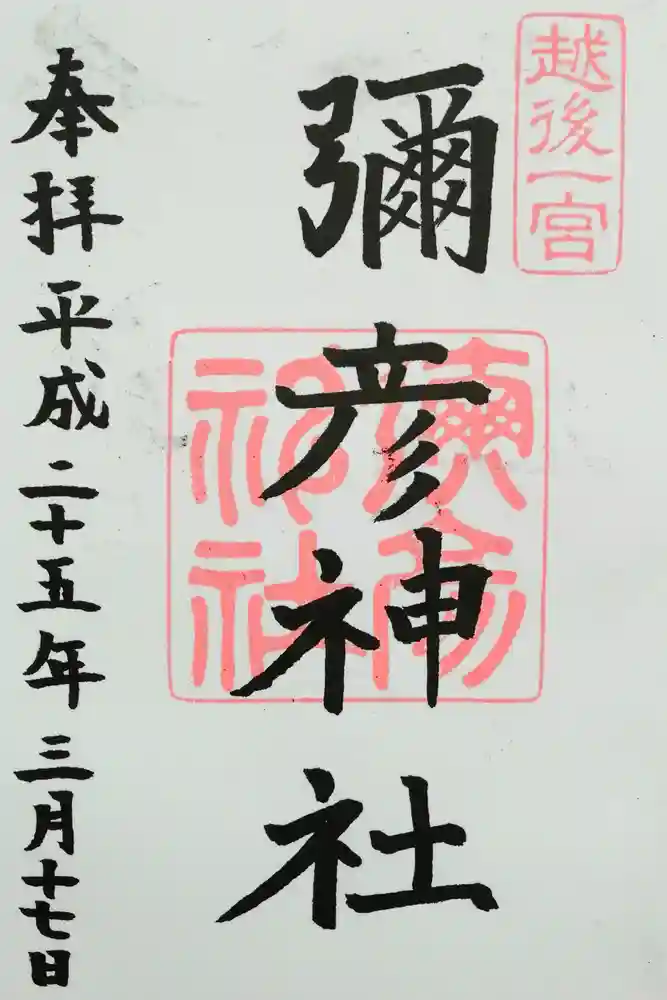 越後一宮
彌彦神社
奉拝 平成二十五年 三月十七日